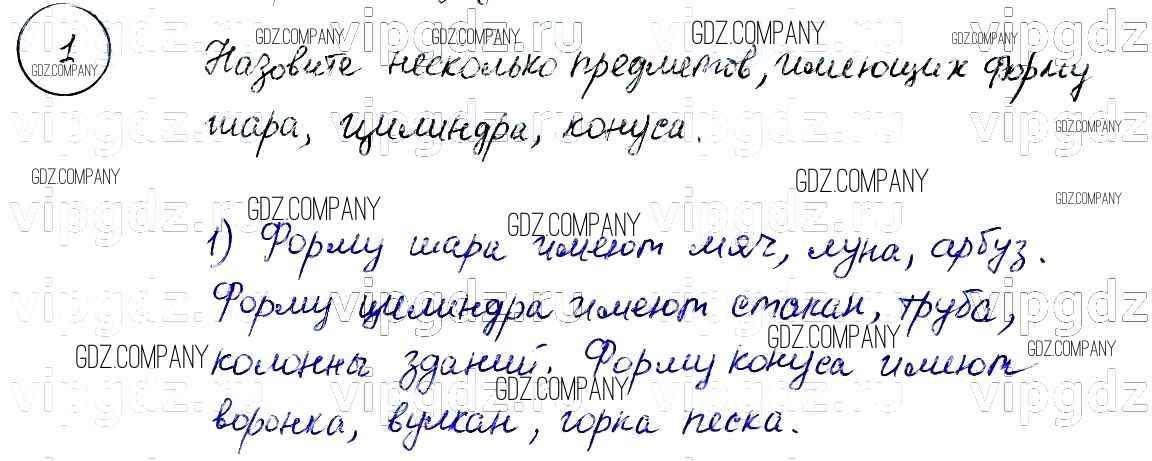 1
Назовите несколько предметов, имеющих форму
шара, цилиндра, конуса.
1) Форму шара имеют мяч, луна, арбуз.
Форму цилиндра имеют стакан, труба,
колонны зданий. Форму конуса имеют
воронка, вулкан, горка песка.
GDZ.COMPANY
vipgdz.ru